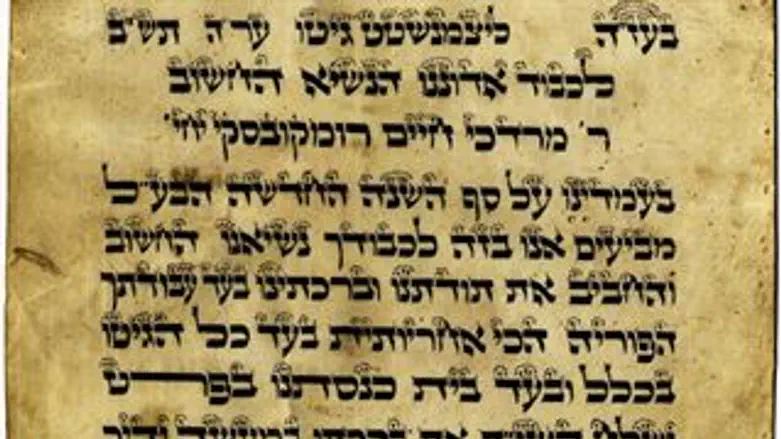 בעז״ה ליצמנשטט גיטו ער״ה תש״ב
לכבוד אדוננו הנשיא החשוב
ר׳ מרדכי חיים רומקובסקי יחי׳
בעמדינו על סף השנה החדשה הבע״ל
מביעים אנו בזה לכבודך נשיאנו החשוב
והחביב את תודתנו וברכתינו בעד עבודתך
הפוריה הכי אחריותית בעד כל הגיטו
בכלל ובעד בית כנסתנו בפרט
את